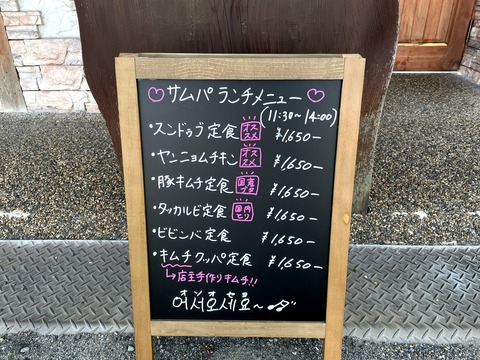 ♡サムパ ランチメニュー♡
(11:30~14:00)
・スンドゥブ定食 オススメ ¥1,650-
・ヤンニョムチキン オススメ ¥1,650-
・豚キムチ定食 国産ブタ ¥1,650-
・タッカルビ定食 国内とり ¥1,650-
・ビビンバ定食 ¥1,650-
・キムチクッパ定食 ¥1,650-
↳店主手作りキムチ!!
어서오세요~♪